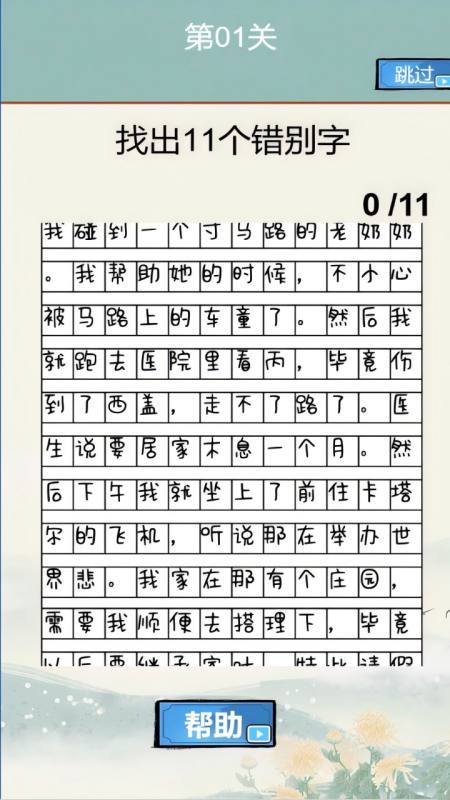 第01关
跳过
找出11个错别字
0 /11
我碰到一个寸马路的老奶奶
。我帮助她的时候，不小心
被马路上的车童了。然后我
就跑去医院里看丙，毕竟伤
到了西盖，走不了路了。医
生说要居家木息一个月。然
后下午我就坐上了前住卡塔
尔的飞机，听说那在举办世
界悲。我家在那有个庄园，
需要我顺便去搭理下，毕竟
以后要继子家叶，特此请假
帮助